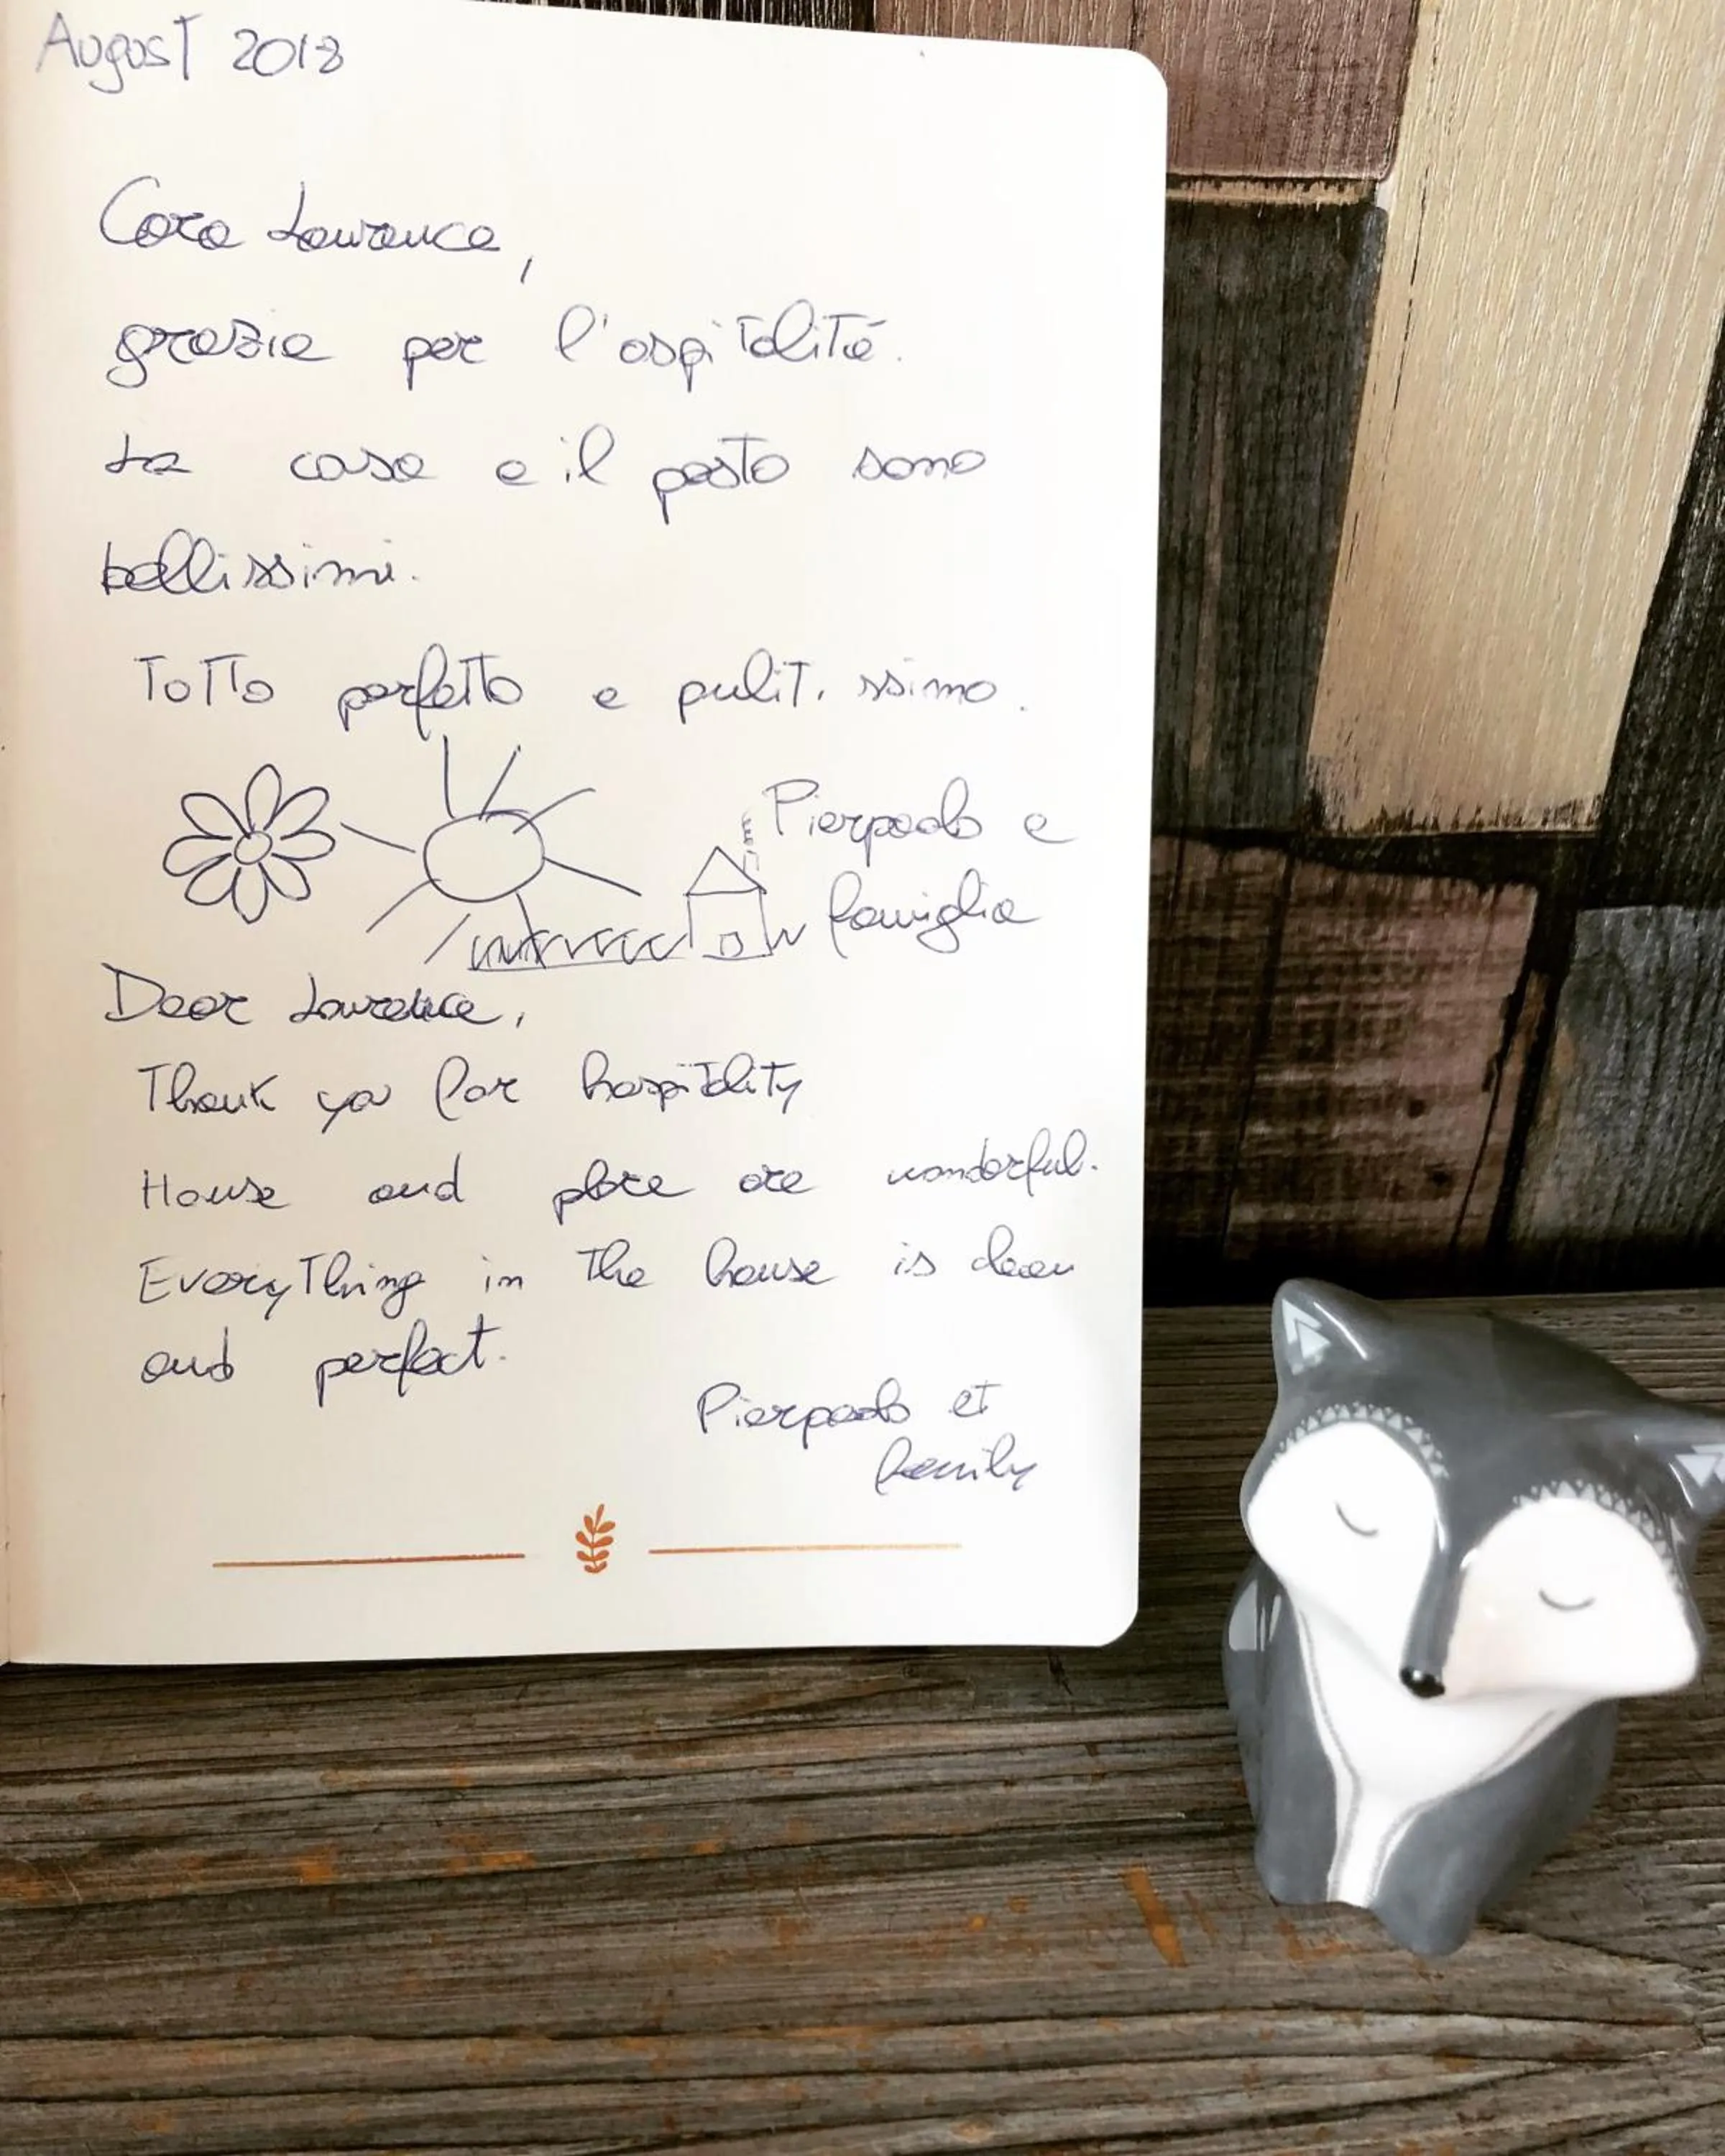 August 2018
Cara Laurence,
grazie per l'ospitalità.
La casa e il posto sono
bellissimi.
Totto perfetto e pulitissimo.
Pierpaolo e
famiglia
Dear Laurence,
Thank you for hospitality
House and place are wonderful.
Everything in the house is clean
and perfect.
Pierpaolo et
family